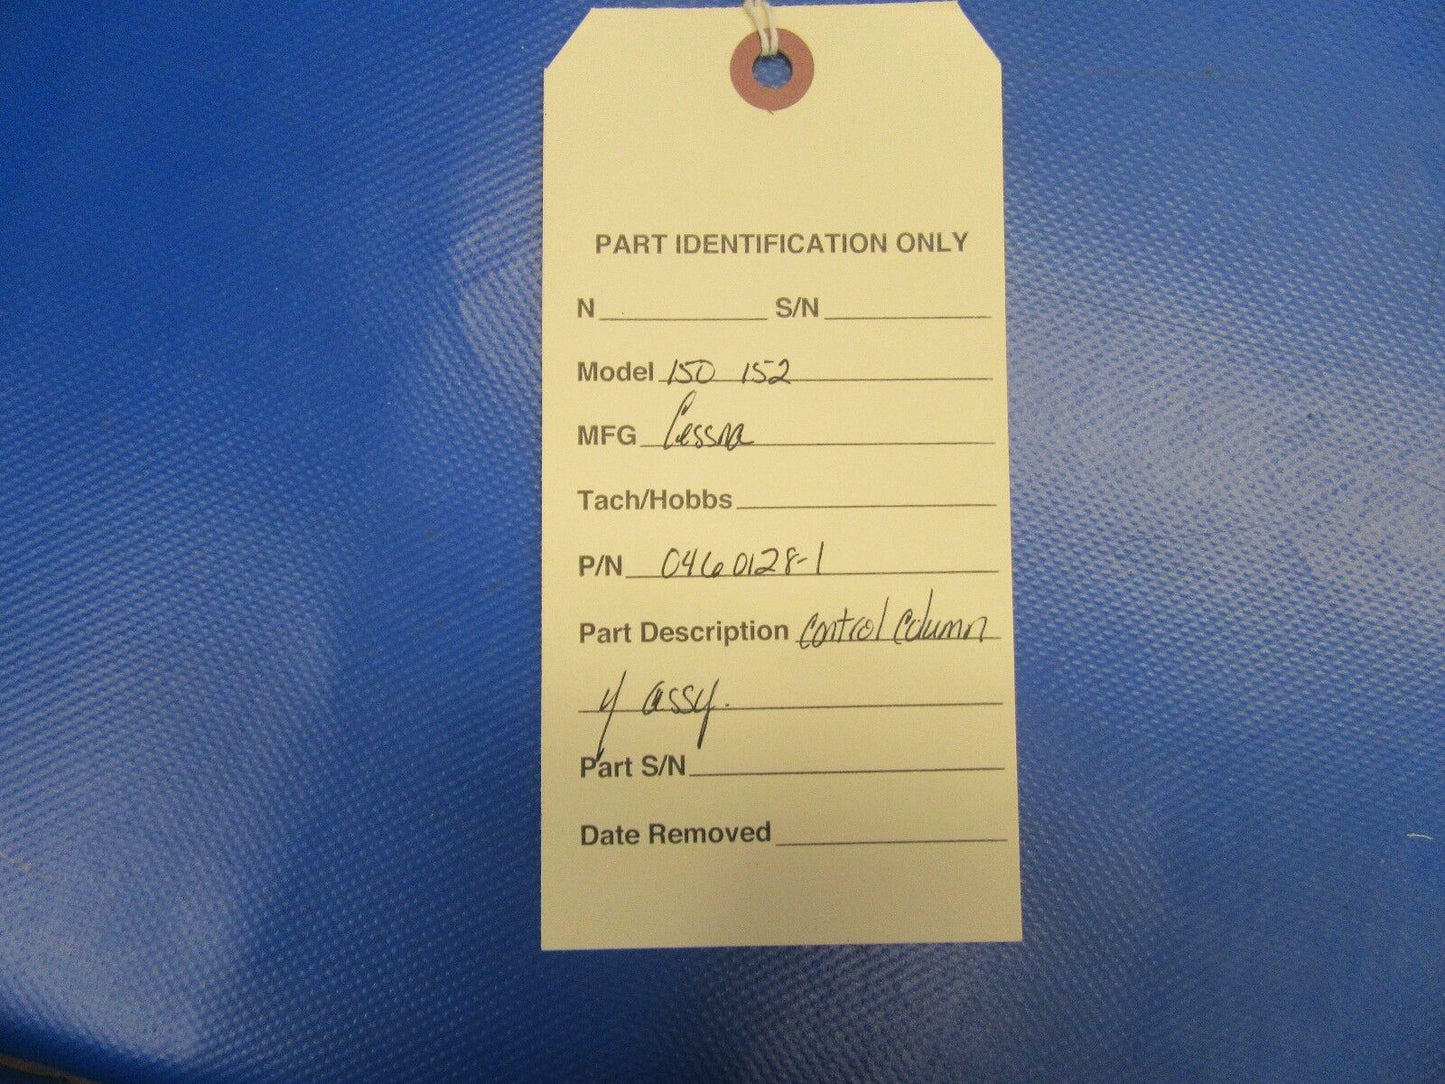 PART IDENTIFICATION ONLY
N S/N
Model 150 152
MFG Cessna
Tach/Hobbs
P/N 0460128-1
Part Description Control Column
y assy.
Part S/N
Date Removed